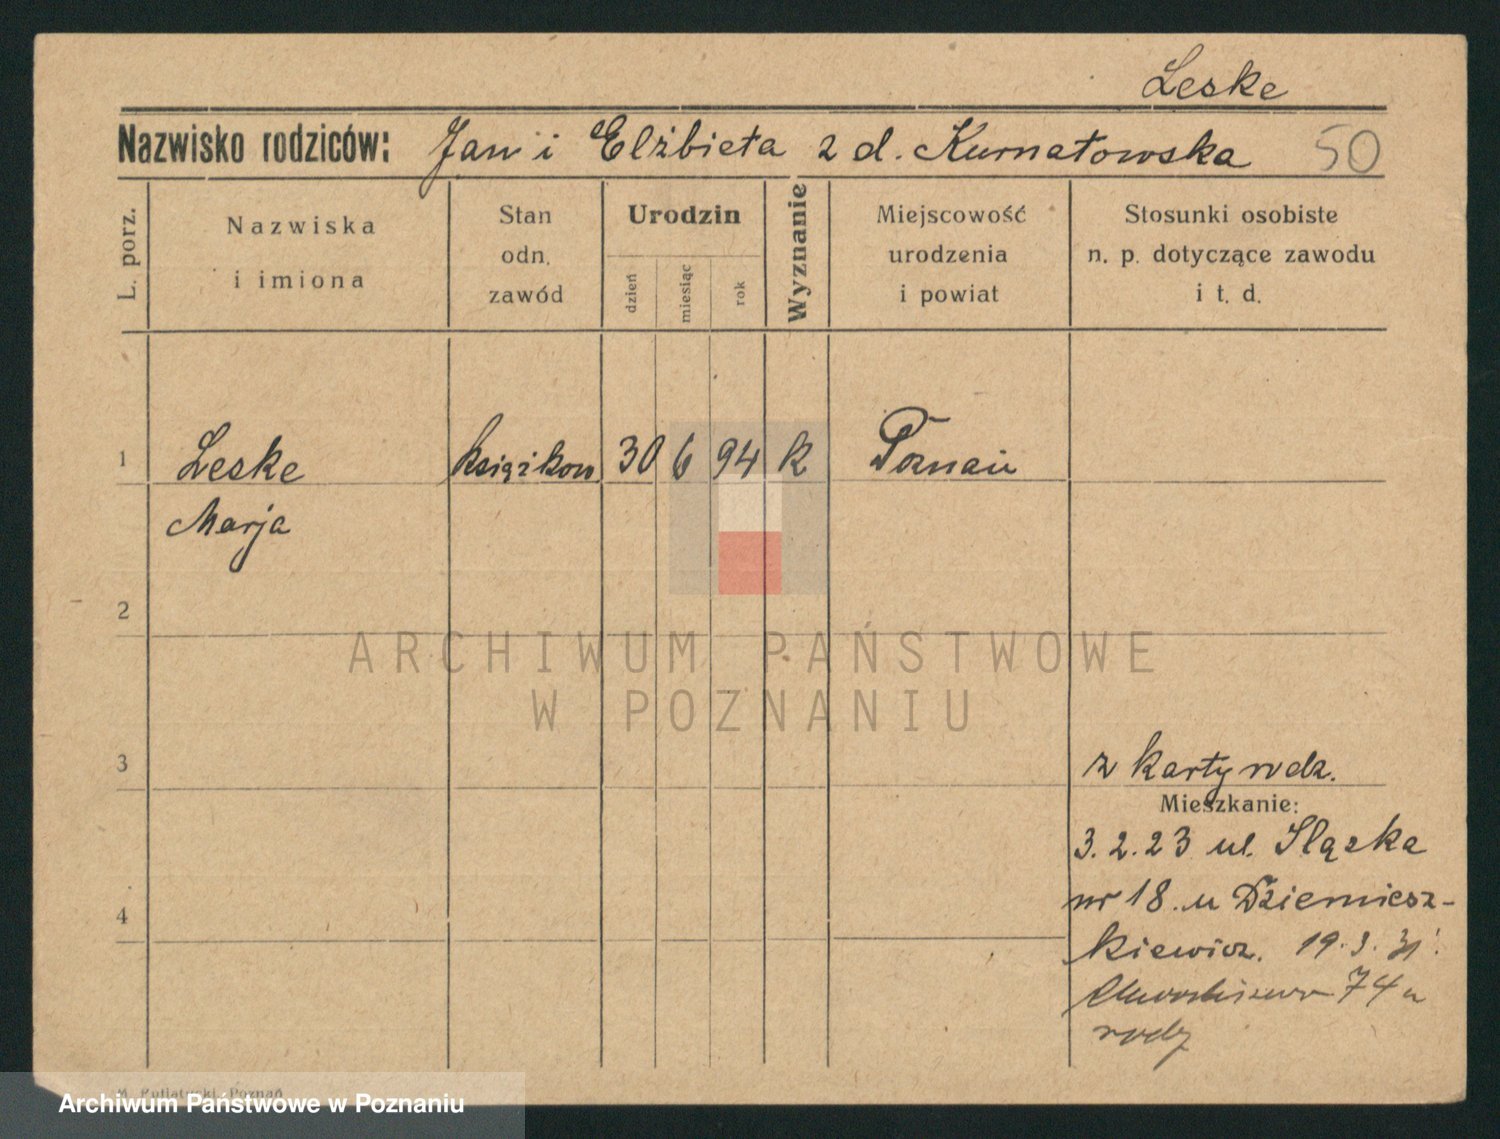 Leske
Nazwisko rodziców: Jan i Elżbieta z d. Kurnatowska 50
L. porz.
Nazwiska
i imiona
Stan
odn.
zawód
Urodzin
dzień
miesiąc
rok
Wyznanie
Miejscowość
urodzenia
i powiat
Stosunki osobiste
n. p. dotyczące zawodu
i t. d.
1 Leske książkow 30 6 94 k Poznań
Marja
2
ARCHIWUM PAŃSTWOWE
W POZNANIU
3 z karty rodz.
Mieszkanie:
3.2.23 ul. Śląska
4 nr 18. u Dziemiesz-
kiewicz. 19.3.31
74 u
rodz
M. Putiatycki, Poznań
Archiwum Państwowe w Poznaniu